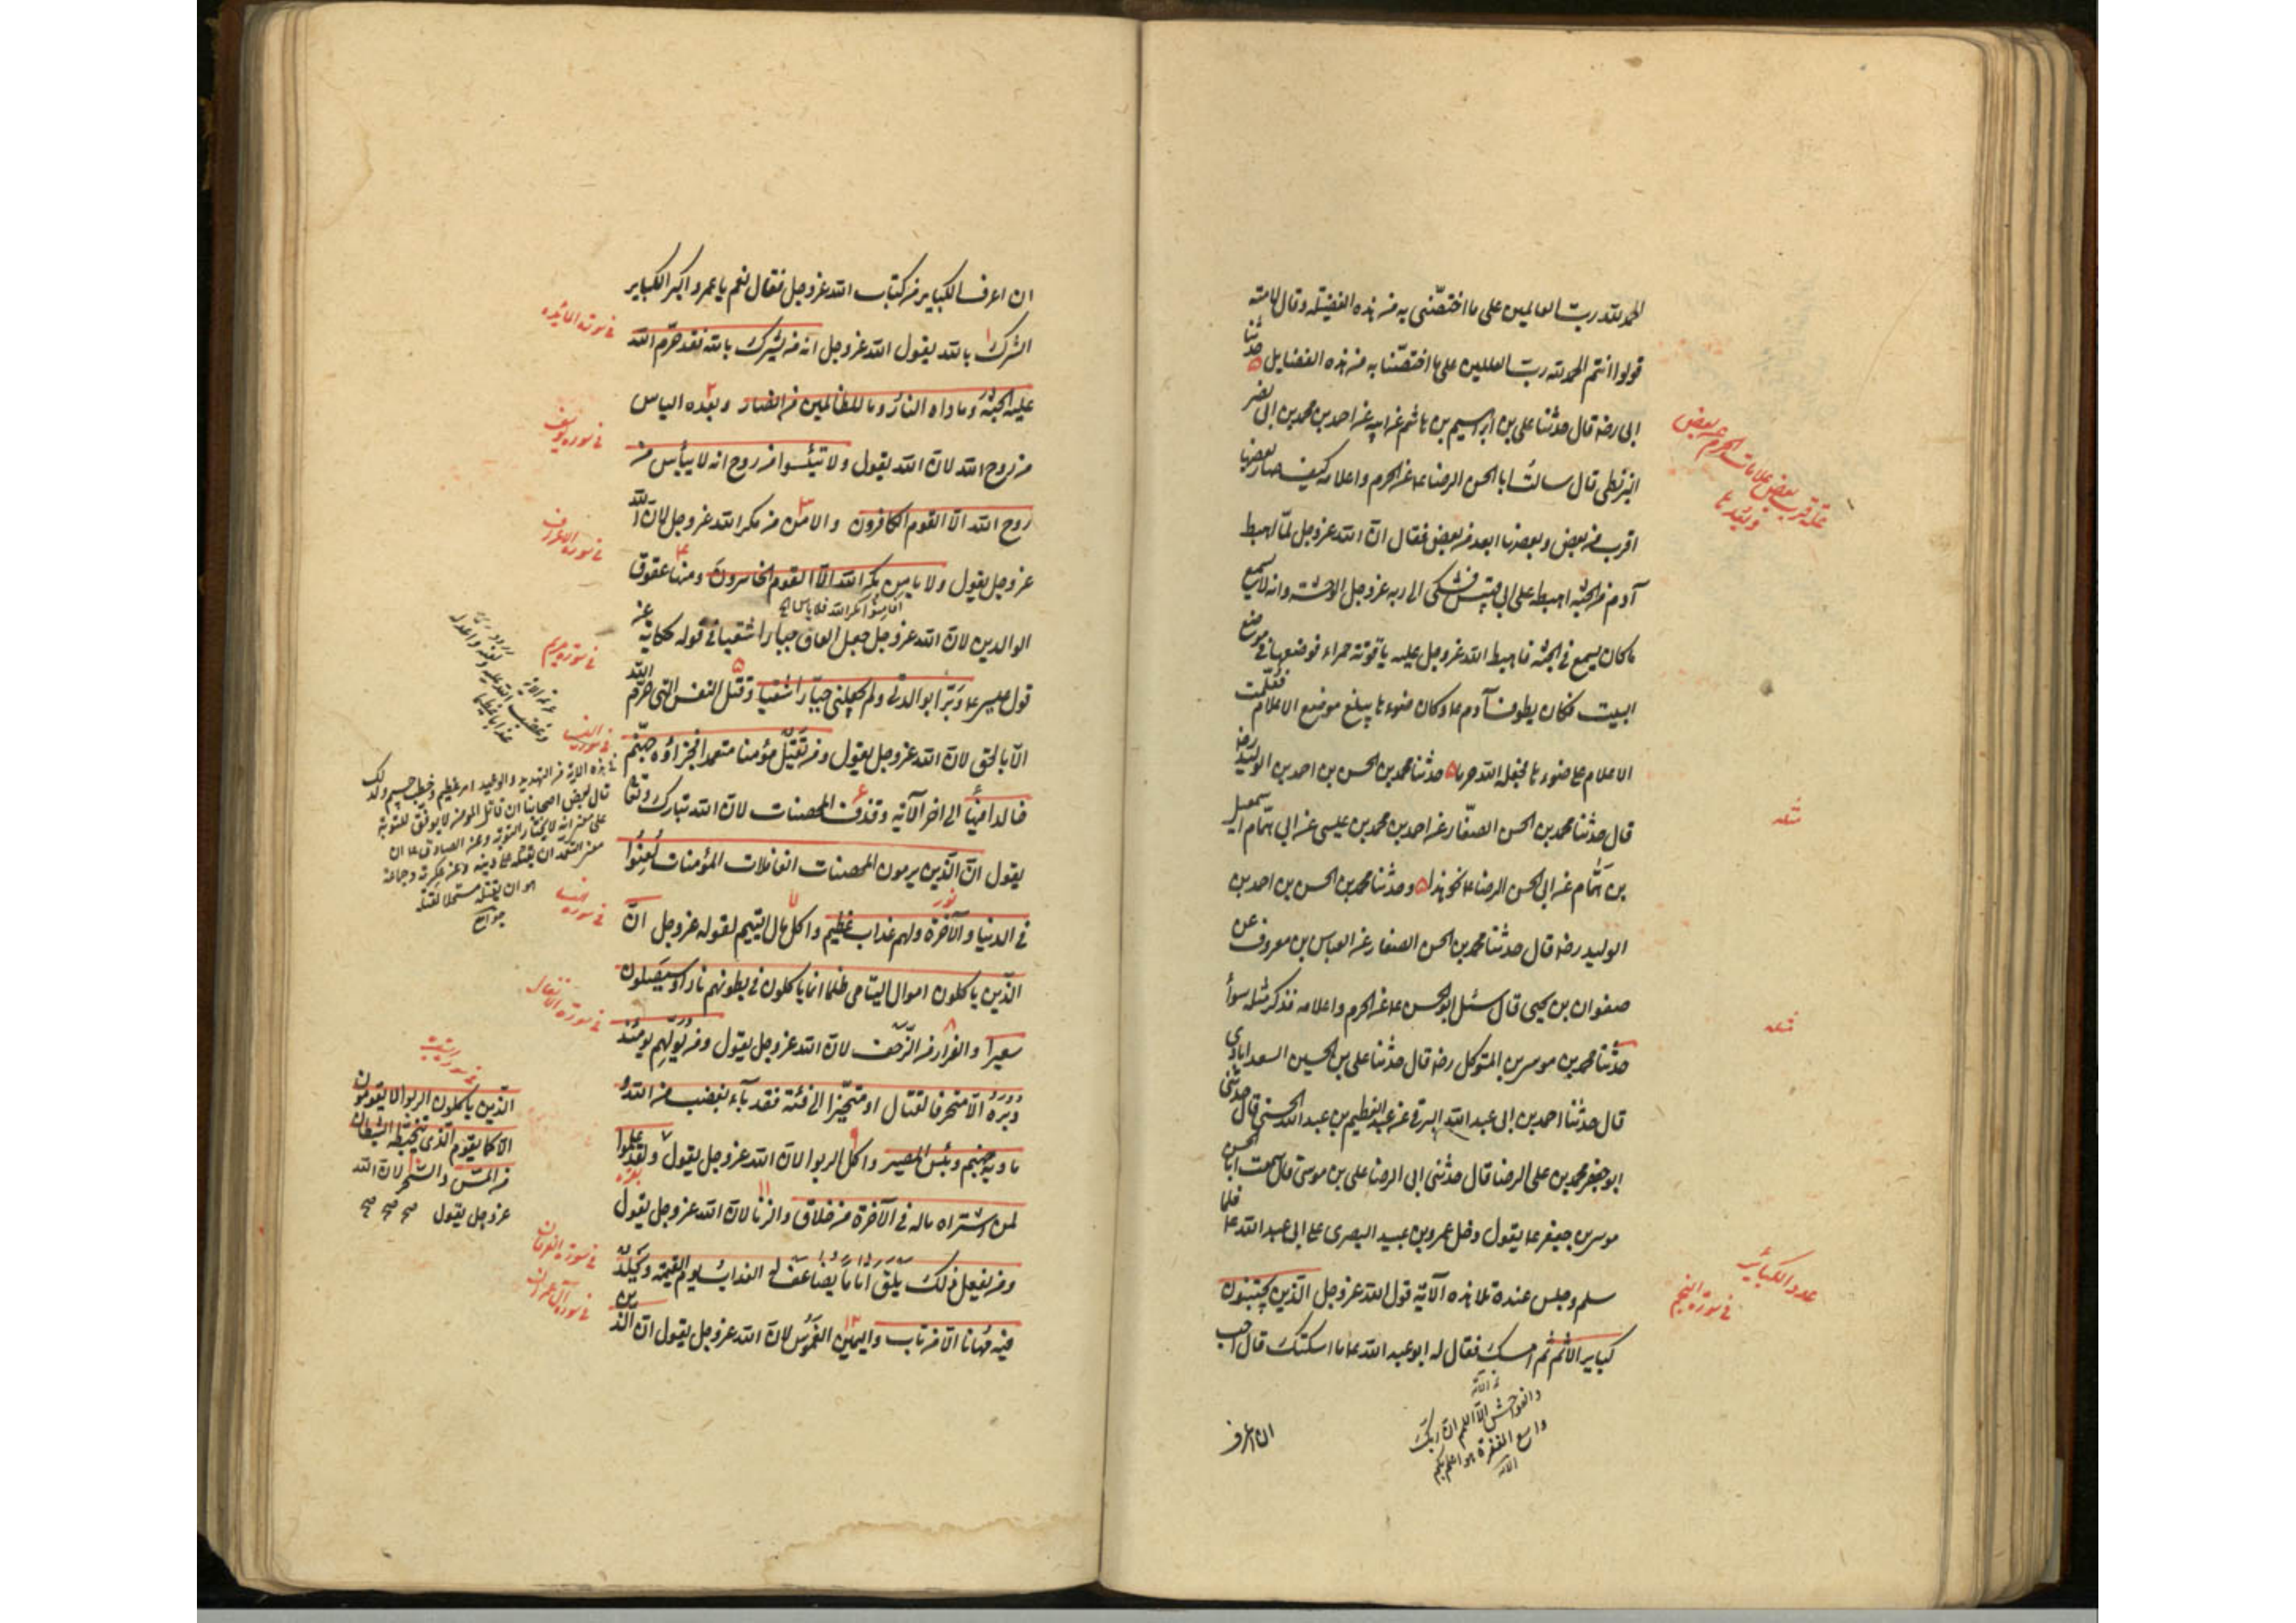 الحمد لله رب العالمين على ما اختصّنى به من هذه الفضيلة وقال لامته
قولوا انتم الحمد لله رب العالمين على ما اختصّنا به من هذه الفضايل ۵ حدثنا
ابى رضه قال حدثنا على بن ابرهيم بن هاشم عن ابيه عن احمد بن محمد بن ابى نصر
البزنطى قال سالت ابا الحسن الرضا ع عن الحرم واعلامه كيف صار بعضها
اقرب من بعض وبعضها ابعد من بعض فقال ان الله عز وجل لمّا اهبط
آدم من الجنة اهبطه على ابى قبيس فشكى الى ربه عز وجل الوحشة وانه لا يسمع
ما كان يسمع فى الجنة فاهبط الله عز وجل عليه ياقوتة حمراء فوضعها فى موضع
البيت فكان يطوف آدم ع وكان ضوءها يبلغ موضع الاعلام فعلّمت
الاعلام على ضوءها فجعله الله حرما ۵ حدثنا محمد بن الحسن بن احمد بن الوليد رضه
قال حدثنا محمد بن الحسن الصفّار عن احمد بن محمد بن عيسى عن ابى همّام اسمعيل
بن همّام عن ابى الحسن الرضا ع نحو هذا ۵ وحدثنا محمد بن الحسن بن احمد بن
الوليد رضه قال حدثنا محمد بن الحسن الصفار عن العباس بن معروف عن
صفوان بن يحيى قال سئل ابو الحسن ع عن الحرم واعلامه فذكر مثله سوأ
حدثنا محمد بن موسى بن المتوكل رضه قال حدثنا على بن الحسين السعدابادى
قال حدثنا احمد بن ابى عبد الله البرقى عن عبد العظيم بن عبد الله الحسنى قال حدثنى
ابو جعفر محمد بن على الرضا قال حدثنى ابى الرضا على بن موسى قال سمعت ابا الحسن
موسى بن جعفر ع يقول دخل عمرو بن عبيد البصرى على ابى عبد الله ع فلما
سلم وجلس عنده تلا هذه الآية قول الله عز وجل الذين يجتنبون
كباير الاثم ثم امسك فقال له ابو عبد الله ع ما اسكتك قال احب
والفواحش الا اللمم ان ربك
واسع المغفرة هو اعلم بكم
الآية
ان اعرف
علة قرب بعض علامات الحرم عن بعض
وبُعدها
مثله
مثله
عدد الكبائر
فى سورة النجم
ان اعرف الكباير من كتاب الله عز وجل فقال نعم يا عمرو اكبر الكباير
الشرك بالله يقول الله عز وجل انه من يشرك بالله فقد حرّم الله
عليه الجنة وماواه النار وما للظالمين من انصار وبعده الياس
من روح الله لان الله يقول ولا تيئسوا من روح انه لا ييأس من
روح الله الا القوم الكافرون والامن من مكر الله عز وجل لان الله
عز وجل يقول ولا يامن مكر الله الا القوم الخاسرون ومنها عقوق
الوالدين لان الله عز وجل جعل العاق جبارا شقيا فى قوله حكاية عن
قول عيسى ع وبرّا بوالدتى ولم يجعلنى جبّارا شقيا وقتل النفس التى حرّم الله
الا بالحق لان الله عز وجل يقول ومن يقتل مؤمنا متعمدا فجزاؤه جهنّم
خالدا فيها الى اخر الآية وقذف المحصنات لان الله تبارك وتعا
يقول ان الذين يرمون المحصنات الغافلات المؤمنات لُعنوا
فى الدنيا والآخرة ولهم عذاب عظيم واكل مال اليتيم لقوله عز وجل ان
الذين ياكلون اموال اليتامى ظلما انما ياكلون فى بطونهم نارا وسيصلون
سعيرا والفرار من الزحف لان الله عز وجل يقول ومن يولهم يومئذ
دبره الا متحرفا لقتال او متحيّزا الى فئة فقد بآء بغضب من الله و
ماويه جهنم وبئس المصير واكل الربوا لان الله عز وجل يقول ولقد علموا
لمن اشتراه ماله فى الآخرة من خلاق والزنا لان الله عز وجل يقول
ومن يفعل ذلك يلق اثاما يضاعف له العذاب يوم القيمة ويخلد
فيه مُهانا الا من تاب واليمين الغموس لان الله عز وجل يقول ان الذين
فى سورة المائدة
فى سورة يوسف
فى سورة الاعراف
فى سورة مريم
فى سورة النساء
فى هذه الاية من التهديد والوعيد امر عظيم وخطب جسيم ولذلك
قال بعض اصحابنا ان قاتل المؤمن لا يوفق للتوبة
على معنى انه لا يختار التوبة وعن الصادق ع ان
معنى التعمد ان يقتله على دينه وعن عكرمة وجماعة
هو ان يقتله مستحلا لقتله
جوامع
نور
فى سورة النساء
فى سورة الانفال
الذين ياكلون الربوا لا يقومون
الا كما يقوم الذى يتخبطه الشيطان
من المسّ والسّحر لان الله
عز وجل يقول صح صح صح
بقره
فى سورة الفرقان
فى سورة آل عمران